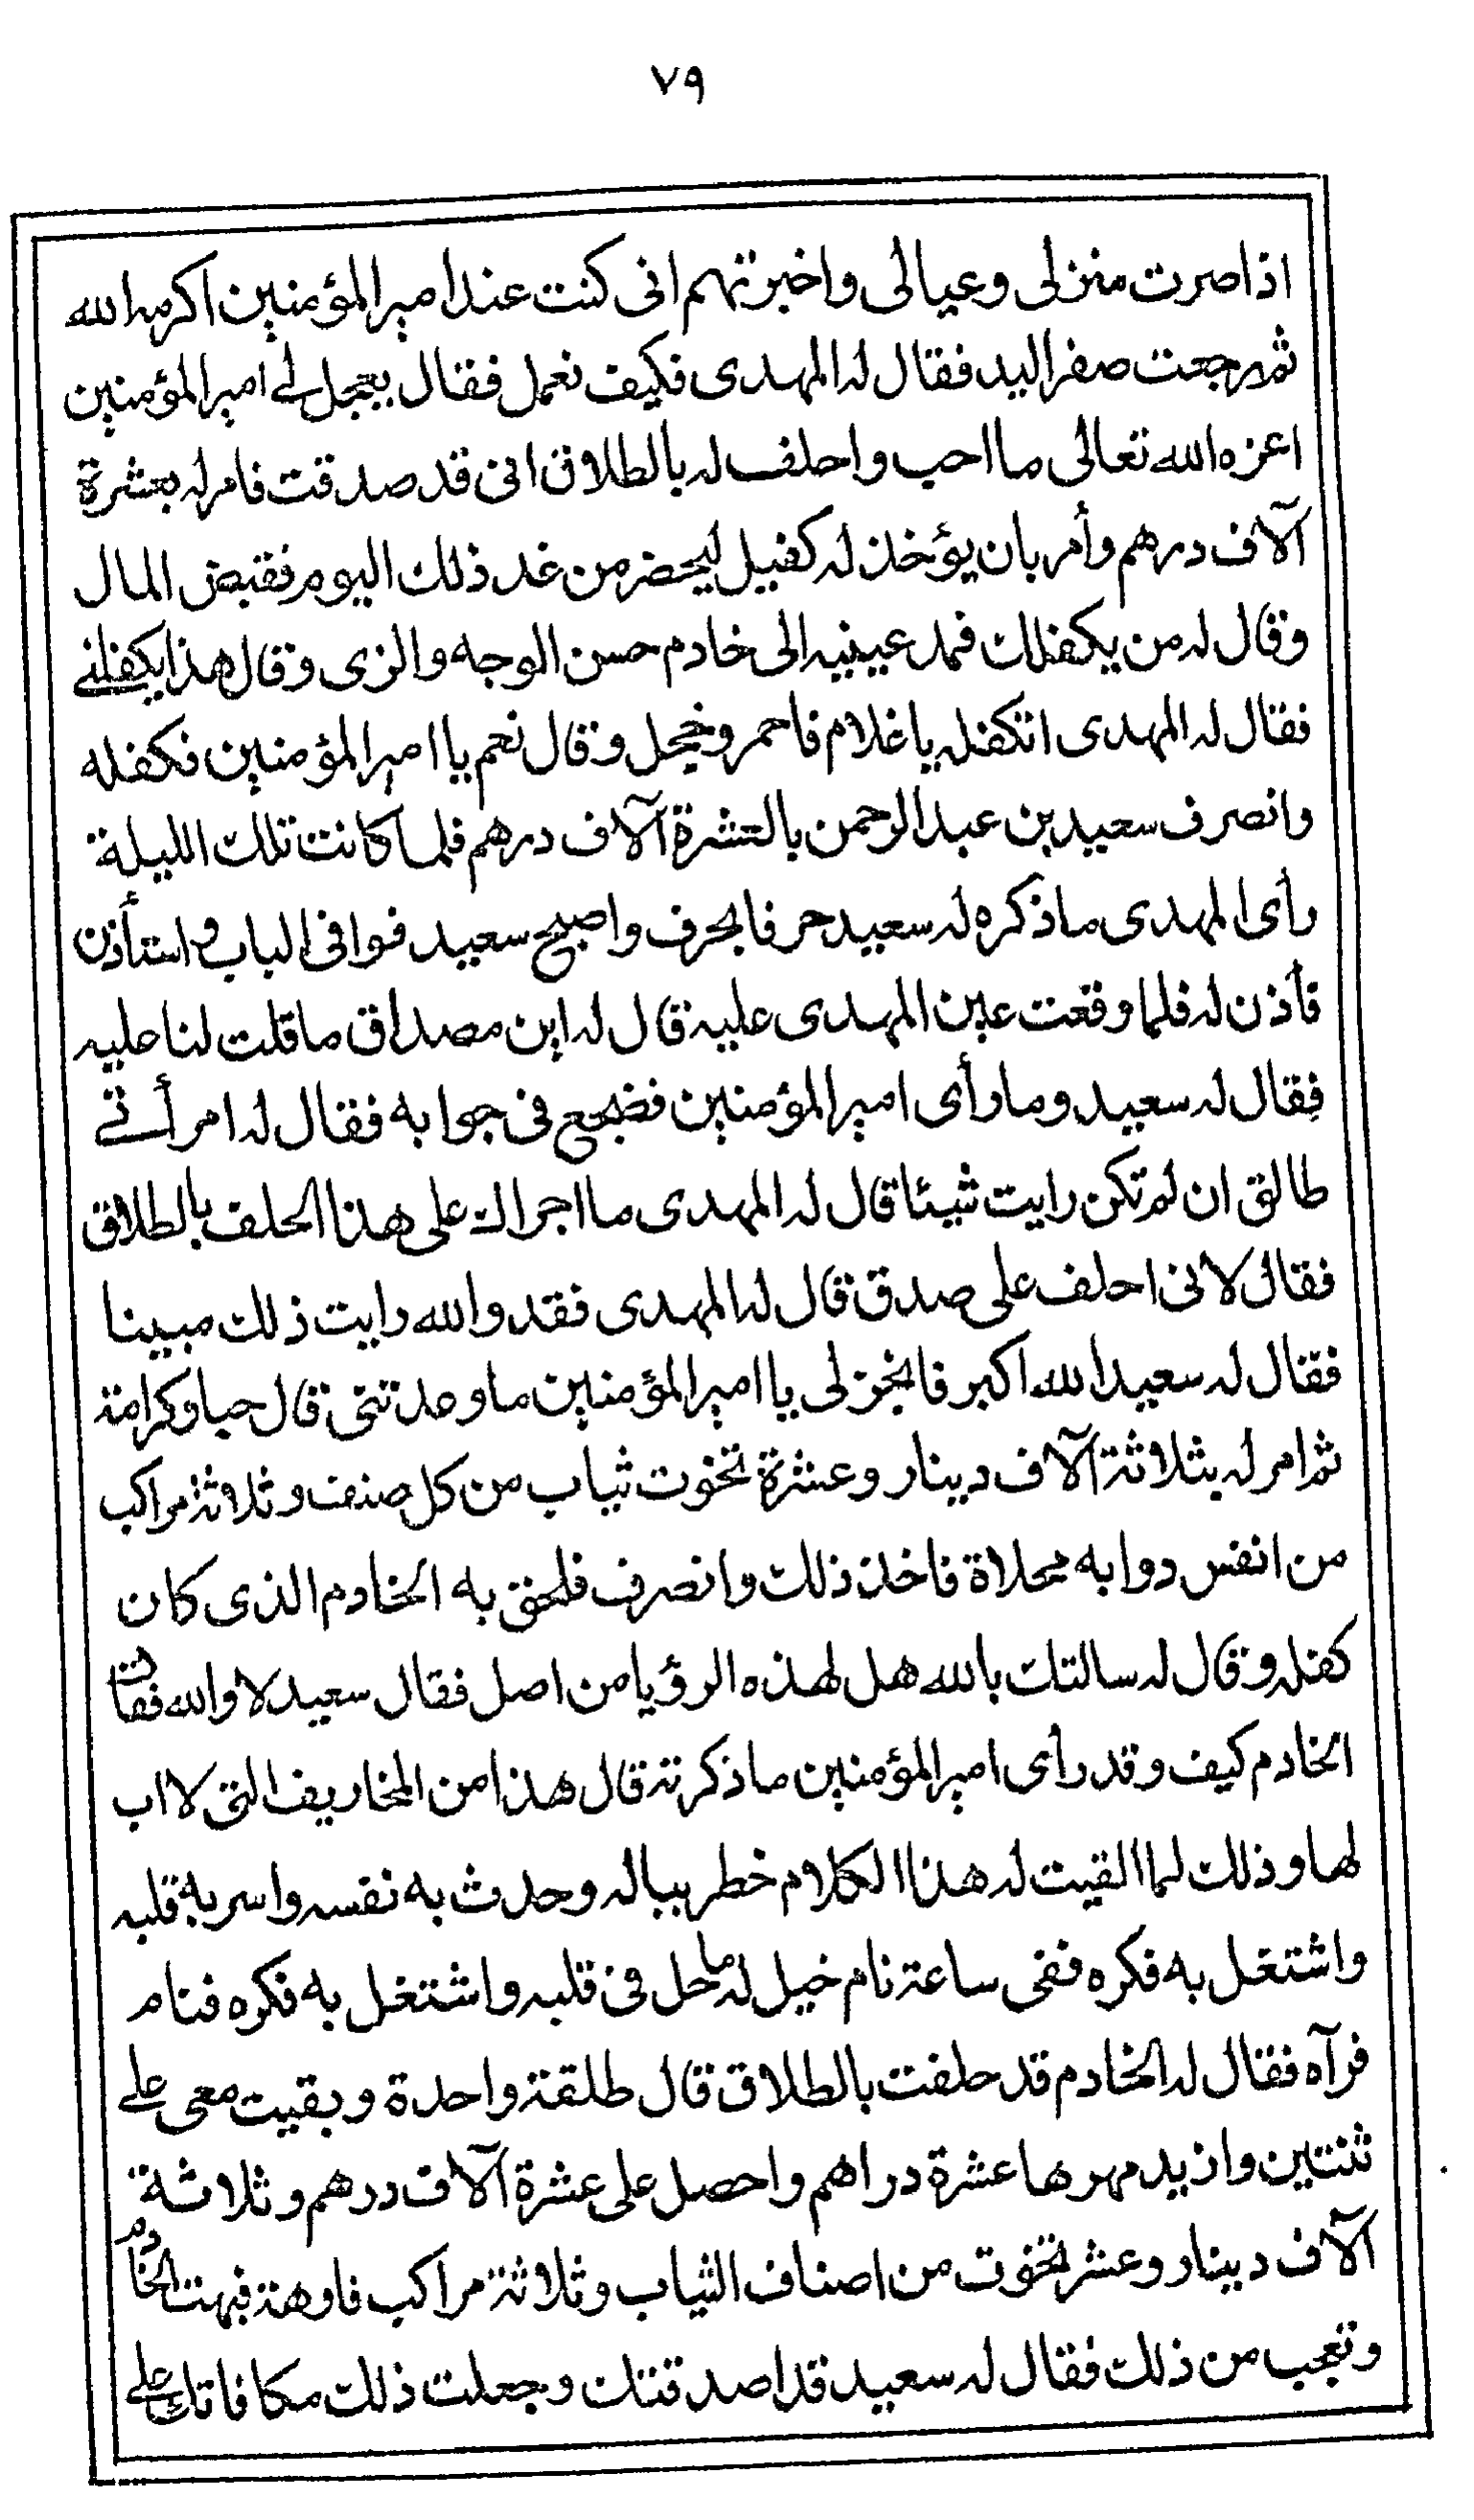 ٧٩
اذا صرت منزلى وعيالى واخبرتهم انى كنت عند امير المؤمنين اكرمه الله
ثم رجعت صفر اليد فقال له المهدى فكيف نعمل فقال يعجل لے امير المؤمنين
اعزه الله تعالى ما احب واحلف له بالطلاق انى قد صدقت فامر له بعشرة
آلاف درهم وأمر بان يؤخذ له كفيل ليحضر من غد ذلك اليوم فقبض المال
وقال له من يكفلك فمد عينيه الى خادم حسن الوجه والزى وقال هذا يكفلنے
فقال له المهدى اتكفله يا غلام فاحمر وخجل وقال نعم يا امير المؤمنين فكفله
وانصرف سعيد بن عبد الرحمن بالعشرة آلاف درهم فلما كانت تلك الليلة
رأى المهدى ما ذكره له سعيد حرفا بحرف واصبح سعيد فوافى الباب واستأذن
فأذن له فلما وقعت عين المهدى عليه قال له اين مصداق ما قلت لنا عليه
فقال له سعيد وما رأى امير المؤمنين فضجع فى جوابه فقال له امرأتے
طالق ان لم تكن رايت شيئا قال له المهدى ما اجراك على هذا الحلف بالطلاق
فقال لانى احلف على صدق قال له المهدى فقد والله رايت ذلك مبينا
فقال له سعيد الله اكبر فانجز لى يا امير المؤمنين ما وعدتنى قال حبا وكرامة
ثم امر له بثلاثة آلاف دينار وعشرة تخوت ثياب من كل صنف وثلاثة مراكب
من انفس دوابه محلاة فاخذ ذلك وانصرف فلحق به الخادم الذى كان
كفله وقال له سالتك بالله هل لهذه الرؤيا من اصل فقال سعيد لا والله فقال
الخادم كيف وقد رأى امير المؤمنين ما ذكرته قال هذا من المخاريف التى لا اب
لها وذلك لما القيت له هذا الكلام خطر بباله وحدث به نفسه واسر به قلبه
واشتغل به فكره ففى ساعة نام خيل له ما حل فى قلبه واشتغل به فكره فنام
فرآه فقال له الخادم قد حلفت بالطلاق قال طلقة واحدة وبقيت معى علے
ثنتين وازيد مهرها عشرة دراهم واحصل على عشرة آلاف درهم وثلاثة
آلاف دينار وعشر تخوت من اصناف الثياب وثلاثة مراكب فاوهة فبهت الخادم
وتعجب من ذلك فقال له سعيد قد اصدقتك وجعلت ذلك مكافاتك علے